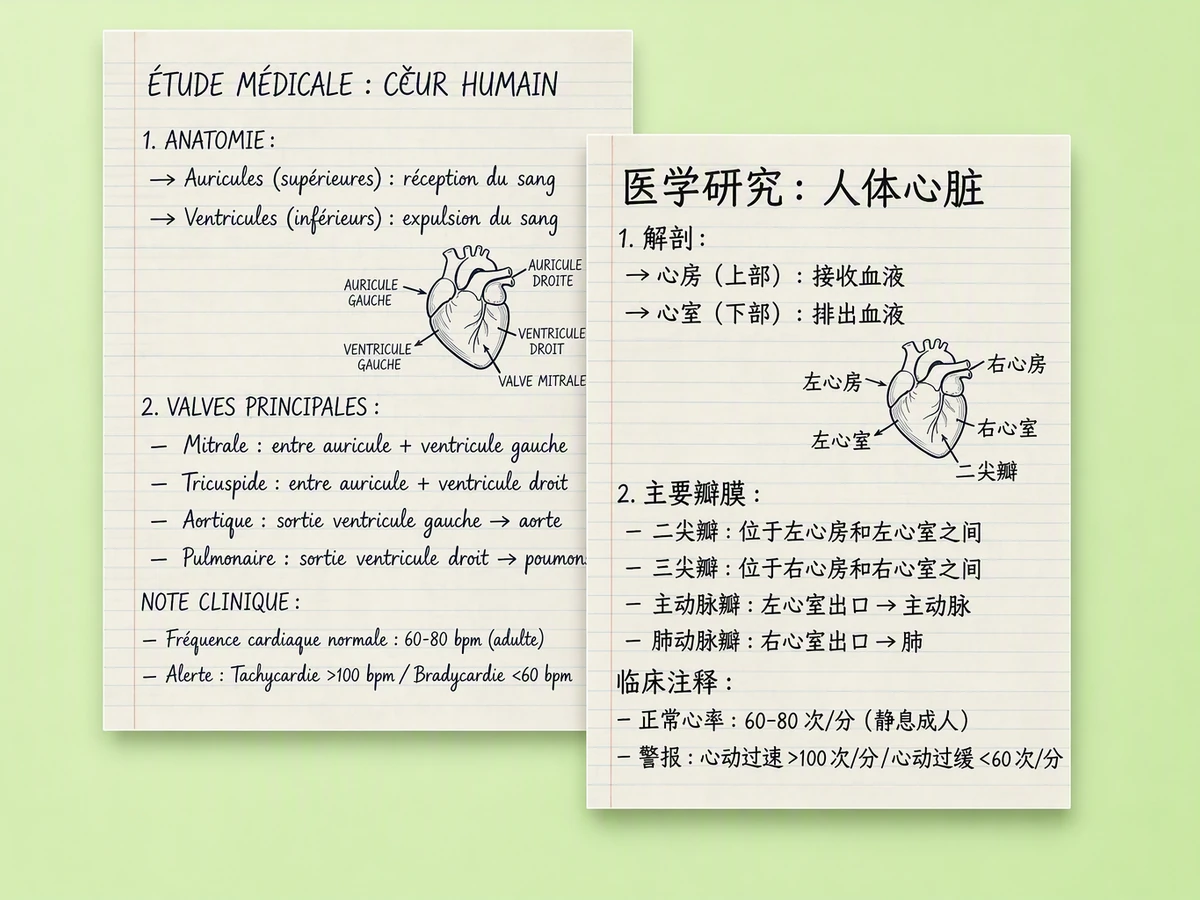 ÉTUDE MÉDICALE : CĚUR HUMAIN
1. ANATOMIE :
→ Auricules (supérieures) : réception du sang
→ Ventricules (inférieurs) : expulsion du sang
AURICULE
GAUCHE
AURICULE
DROITE
VENTRICULE
GAUCHE
VENTRICULE
DROIT
VALVE MITRALE
2. VALVES PRINCIPALES :
— Mitrale : entre auricule + ventricule gauche
— Tricuspide : entre auricule + ventricule droit
— Aortique : sortie ventricule gauche → aorte
— Pulmonaire : sortie ventricule droit → poumons
NOTE CLINIQUE :
— Fréquence cardiaque normale : 60-80 bpm (adulte)
— Alerte : Tachycardie >100 bpm / Bradycardie <60 bpm
医学研究：人体心脏
1. 解剖：
→ 心房（上部）：接收血液
→ 心室（下部）：排出血液
左心房
右心房
左心室
右心室
二尖瓣
2. 主要瓣膜：
— 二尖瓣：位于左心房和左心室之间
— 三尖瓣：位于右心房和右心室之间
— 主动脉瓣：左心室出口 → 主动脉
— 肺动脉瓣：右心室出口 → 肺
临床注释：
— 正常心率：60-80 次/分（静息成人）
— 警报：心动过速 >100 次/分 / 心动过缓 <60 次/分